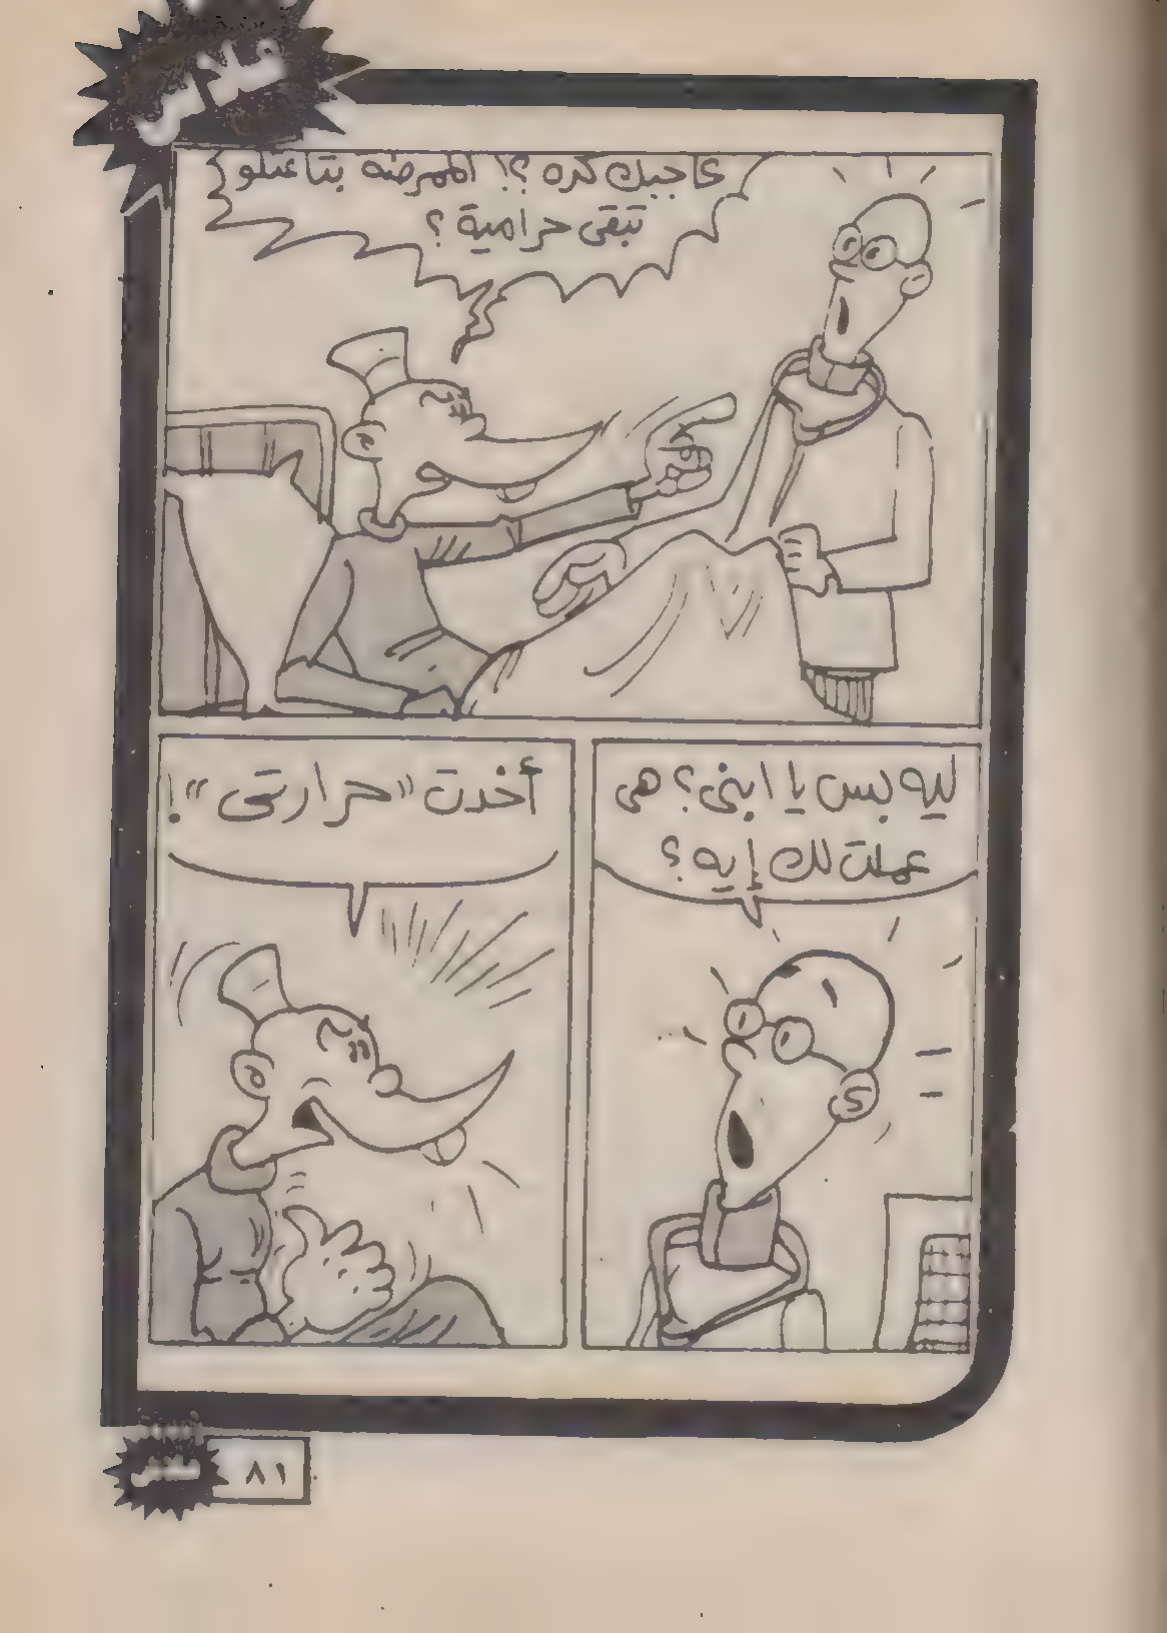 فلاش
عاجبك كده ؟! الممرضه بتاعتكو
تبقى حرامية ؟
ليه بس يا ابنى ؟ هى
عملت لك إيه ؟
أخدت "حرارتى" !
فلاش
٨١